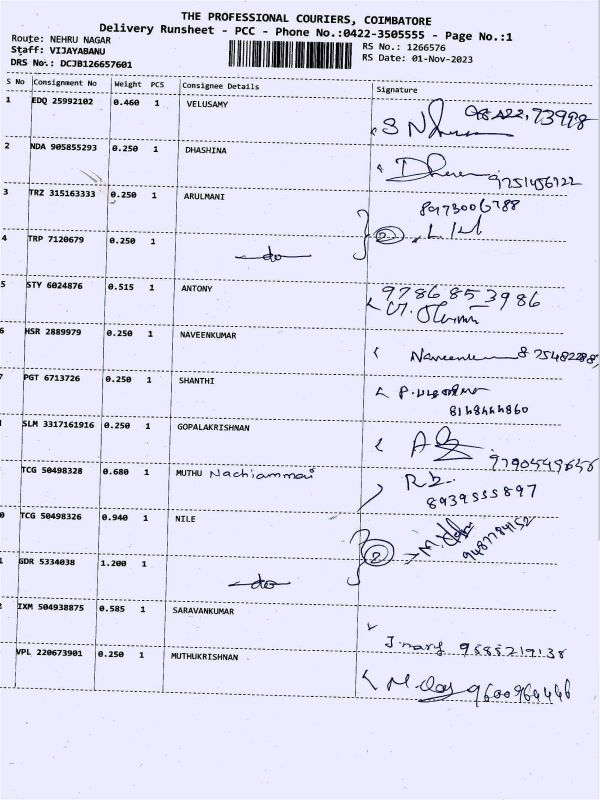 THE PROFESSIONAL COURIERS, COIMBATORE
Delivery Runsheet - PCC - Phone No.:0422-3505555 - Page No.:1
Route: NEHRU NAGAR RS No.: 1266576
Staff: VIJAYABANU RS Date: 01-Nov-2023
DRS No.: DCJB126657601
S No Consignment No Weight PCS Consignee Details Signature
1 EDQ 25992102 0.460 1 VELUSAMY
2 NDA 905855293 0.250 1 DHASHINA
9751456722
3 TRZ 315163333 0.250 1 ARULMANI
8973006788
4 TRP 7120679 0.250 1 do 2
5 STY 6024876 0.515 1 ANTONY 9786853986
6 HSR 2889979 0.250 1 NAVEENKUMAR
7 PGT 6713726 0.250 1 SHANTHI
8148444860
SLM 3317161916 0.250 1 GOPALAKRISHNAN
TCG 50498328 0.680 1 MUTHU Nachiammai
8939555897
0 TCG 50498326 0.940 1 NILE 2
1 GDR 5334038 1.200 1 do
2 IXM 504938875 0.585 1 SARAVANKUMAR
J.mary 9585219138
VPL 220673901 0.250 1 MUTHUKRISHNAN
9600964446